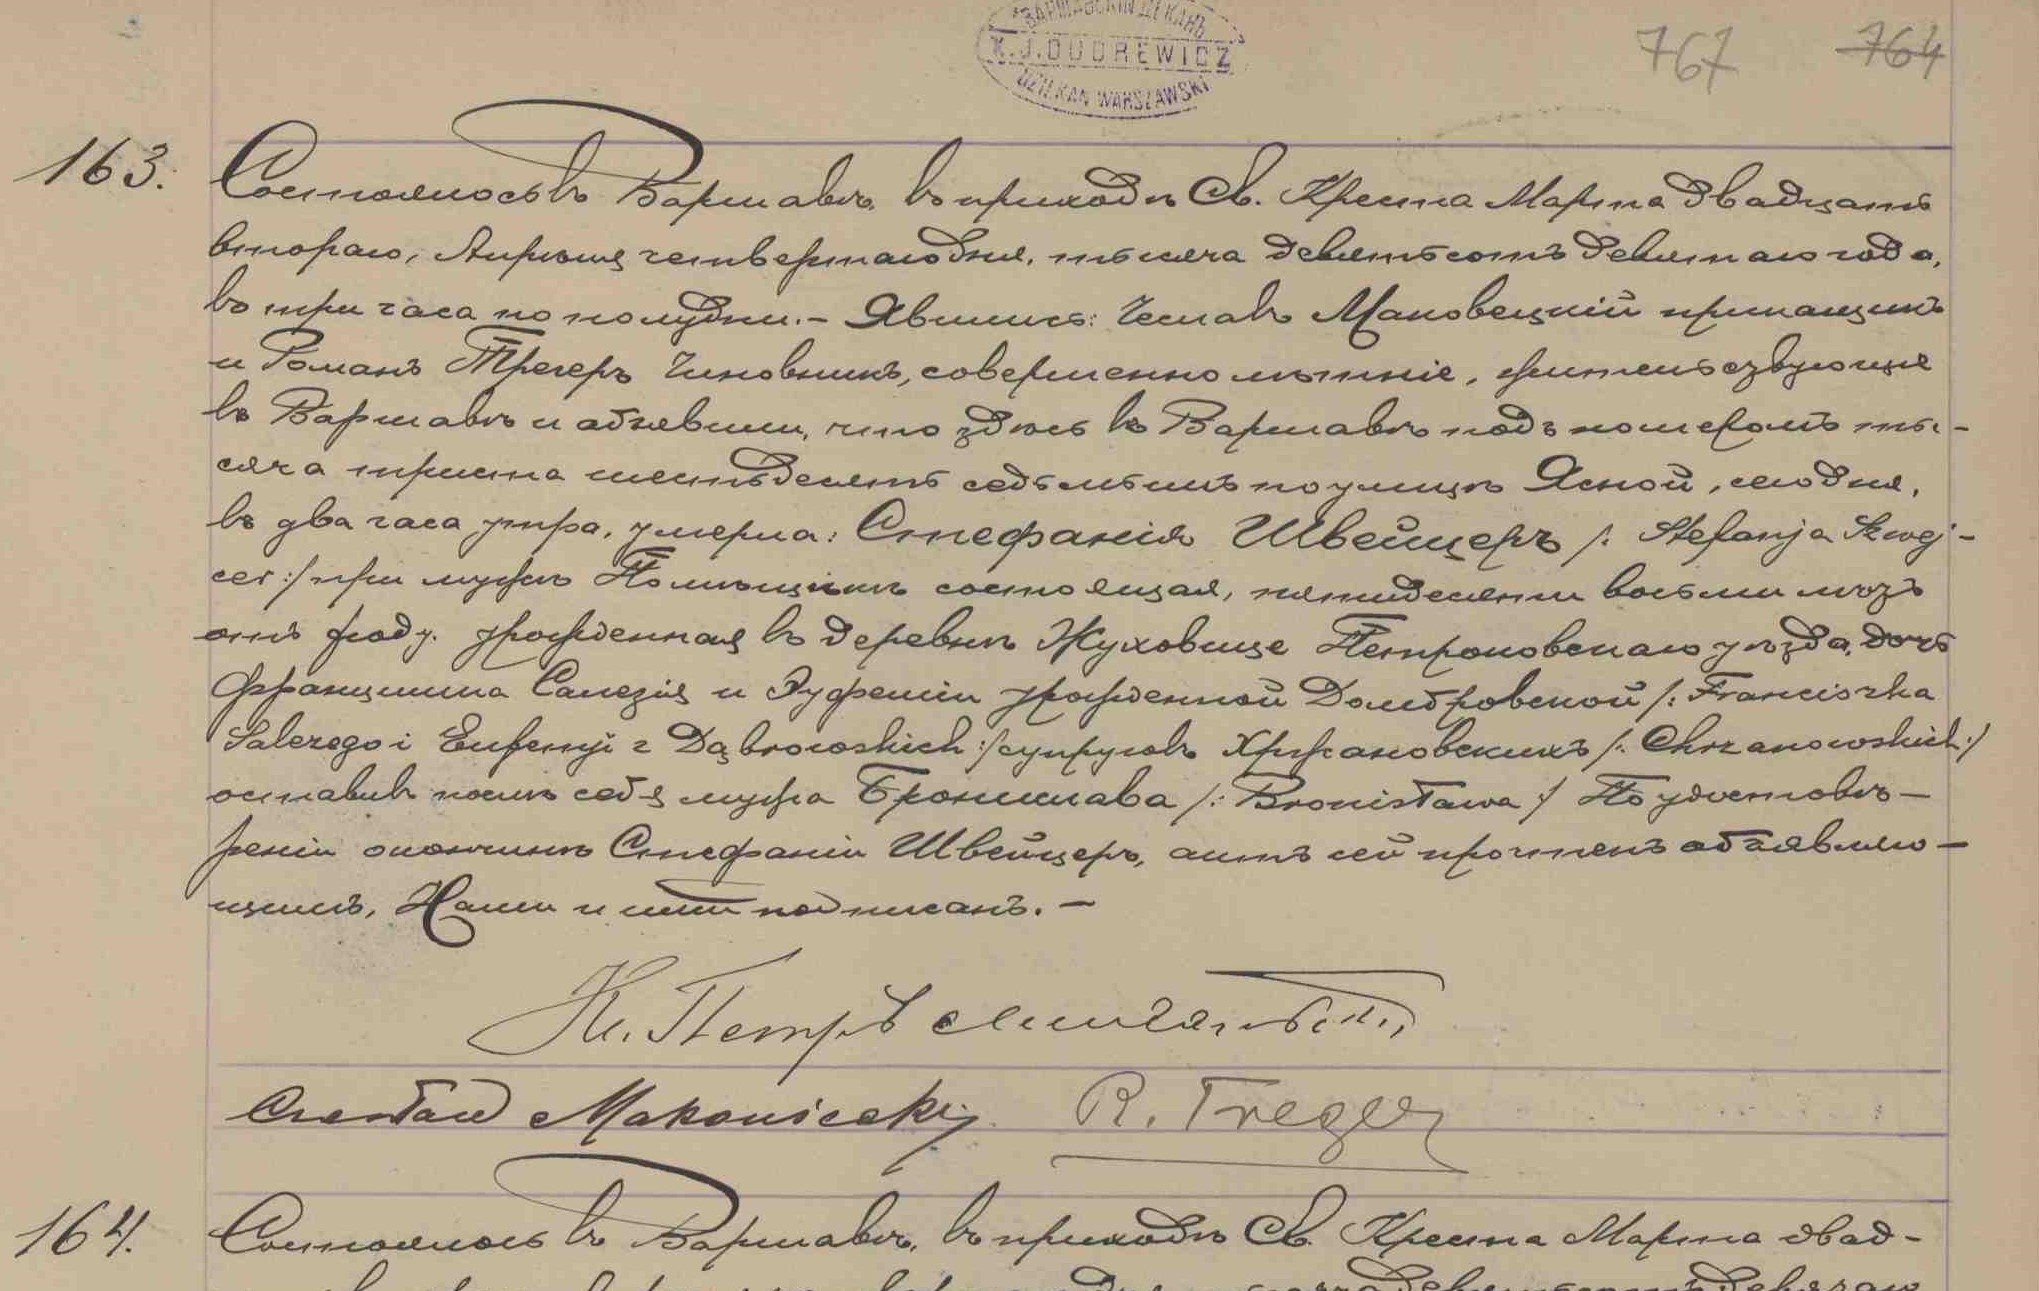 ВАРШАВСКІЙ ДЕКАНЪ
K. J. DUDREWICZ
DZIEKAN WARSZAWSKI
767 764
163. Состоялось въ Варшавѣ, въ приходѣ Св. Креста Марта двадцать
втораго, Апрѣля четвертаго дня, тысяча девятьсотъ девятаго года,
въ три часа по полудни.– Явились: Чеславъ Маковецкій прикащикъ
и Романъ Трегеръ чиновникъ, совершеннолѣтніе, жительствующіе
въ Варшавѣ и объявили, что здѣсь въ Варшавѣ подъ номеромъ ты-
сяча триста шестьдесятъ седьмымъ по улицѣ Ясной, сего дня,
въ два часа утра, умерла: Стефанія Швейцеръ /: Stefanja Szwej-
cer :/ при мужѣ Помѣщикѣ состоящая, пятидесяти восьми лѣтъ
отъ роду. урожденная въ деревнѣ Жуховице Петроковскаго уѣзда, дочь
Францишка Салезія и Эуфеміи урожденной Домбровской /: Franciszka
Salezego i Eufemji z Dąbrowskich :/ супруговъ Хржановскихъ /: Chrzanowskich :/
оставивъ послѣ себя мужа Бронислава /: Bronisława :/ По удостовѣ-
реніи о кончинѣ Стефаніи Швейцеръ, актъ сей прочтенъ объявляю-
щимъ, Нами и ими подписанъ.–
Кс. Петръ
Czesław Makowiecki R. Treger
164. Состоялось въ Варшавѣ, въ приходѣ Св. Креста Марта двад-